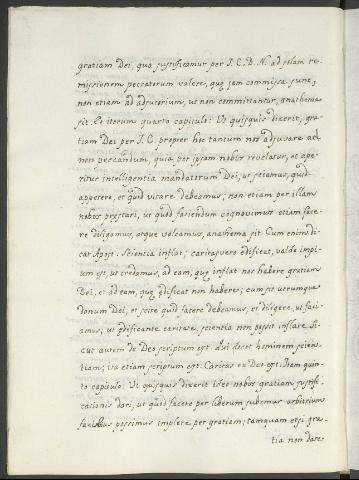 gratiam Dei, qua justificamur per J. C. D. N. ad solam re-
missionem peccatorum valere, quę jam commissa sunt,
non etiam ad adjutorium, ut non committantur, anathema
sit. Et iterum quarto capitulo: Ut quisquis dixerit, gra-
tiam Dei per J. C. propter hoc tantum nos adjuvare ad
non peccandum, quia per ipsam nobis revelatur, et ape-
ritur intelligentia mandatorum Dei, ut sciamus, quid
appetere, et quid vitare debeamus, non etiam per illam
nobis pręstari, ut quod faciendum cognovimus etiam face-
re diligamus, atque valeamus, anathema sit. Cum enim di-
cat Apost. Scientia inflat; caritas vero ędificat, valde impi-
um est, ut credamus, ad eam, quę inflat nos habere gratiam
Dei, et ad eam, quę ędificat non habere; cum sit utrumque
donum Dei, et scire quid facere debeamus, et diligere, ut faci-
amus; ut ędificante caritate, scientia non possit inflare. Si-
cut autem de Deo scriptum est. Qui docet hominem scien-
tiam; ita etiam scriptum est. Caritas ex Deo est. Item quin-
to capitulo. Ut quisquis dixerit ideo nobis gratiam justifi-
cationis dari, ut quod facere per liberum jubemur arbitrium
facilius possimus implere per gratiam; tamquam etsi gra-
tia non dare-